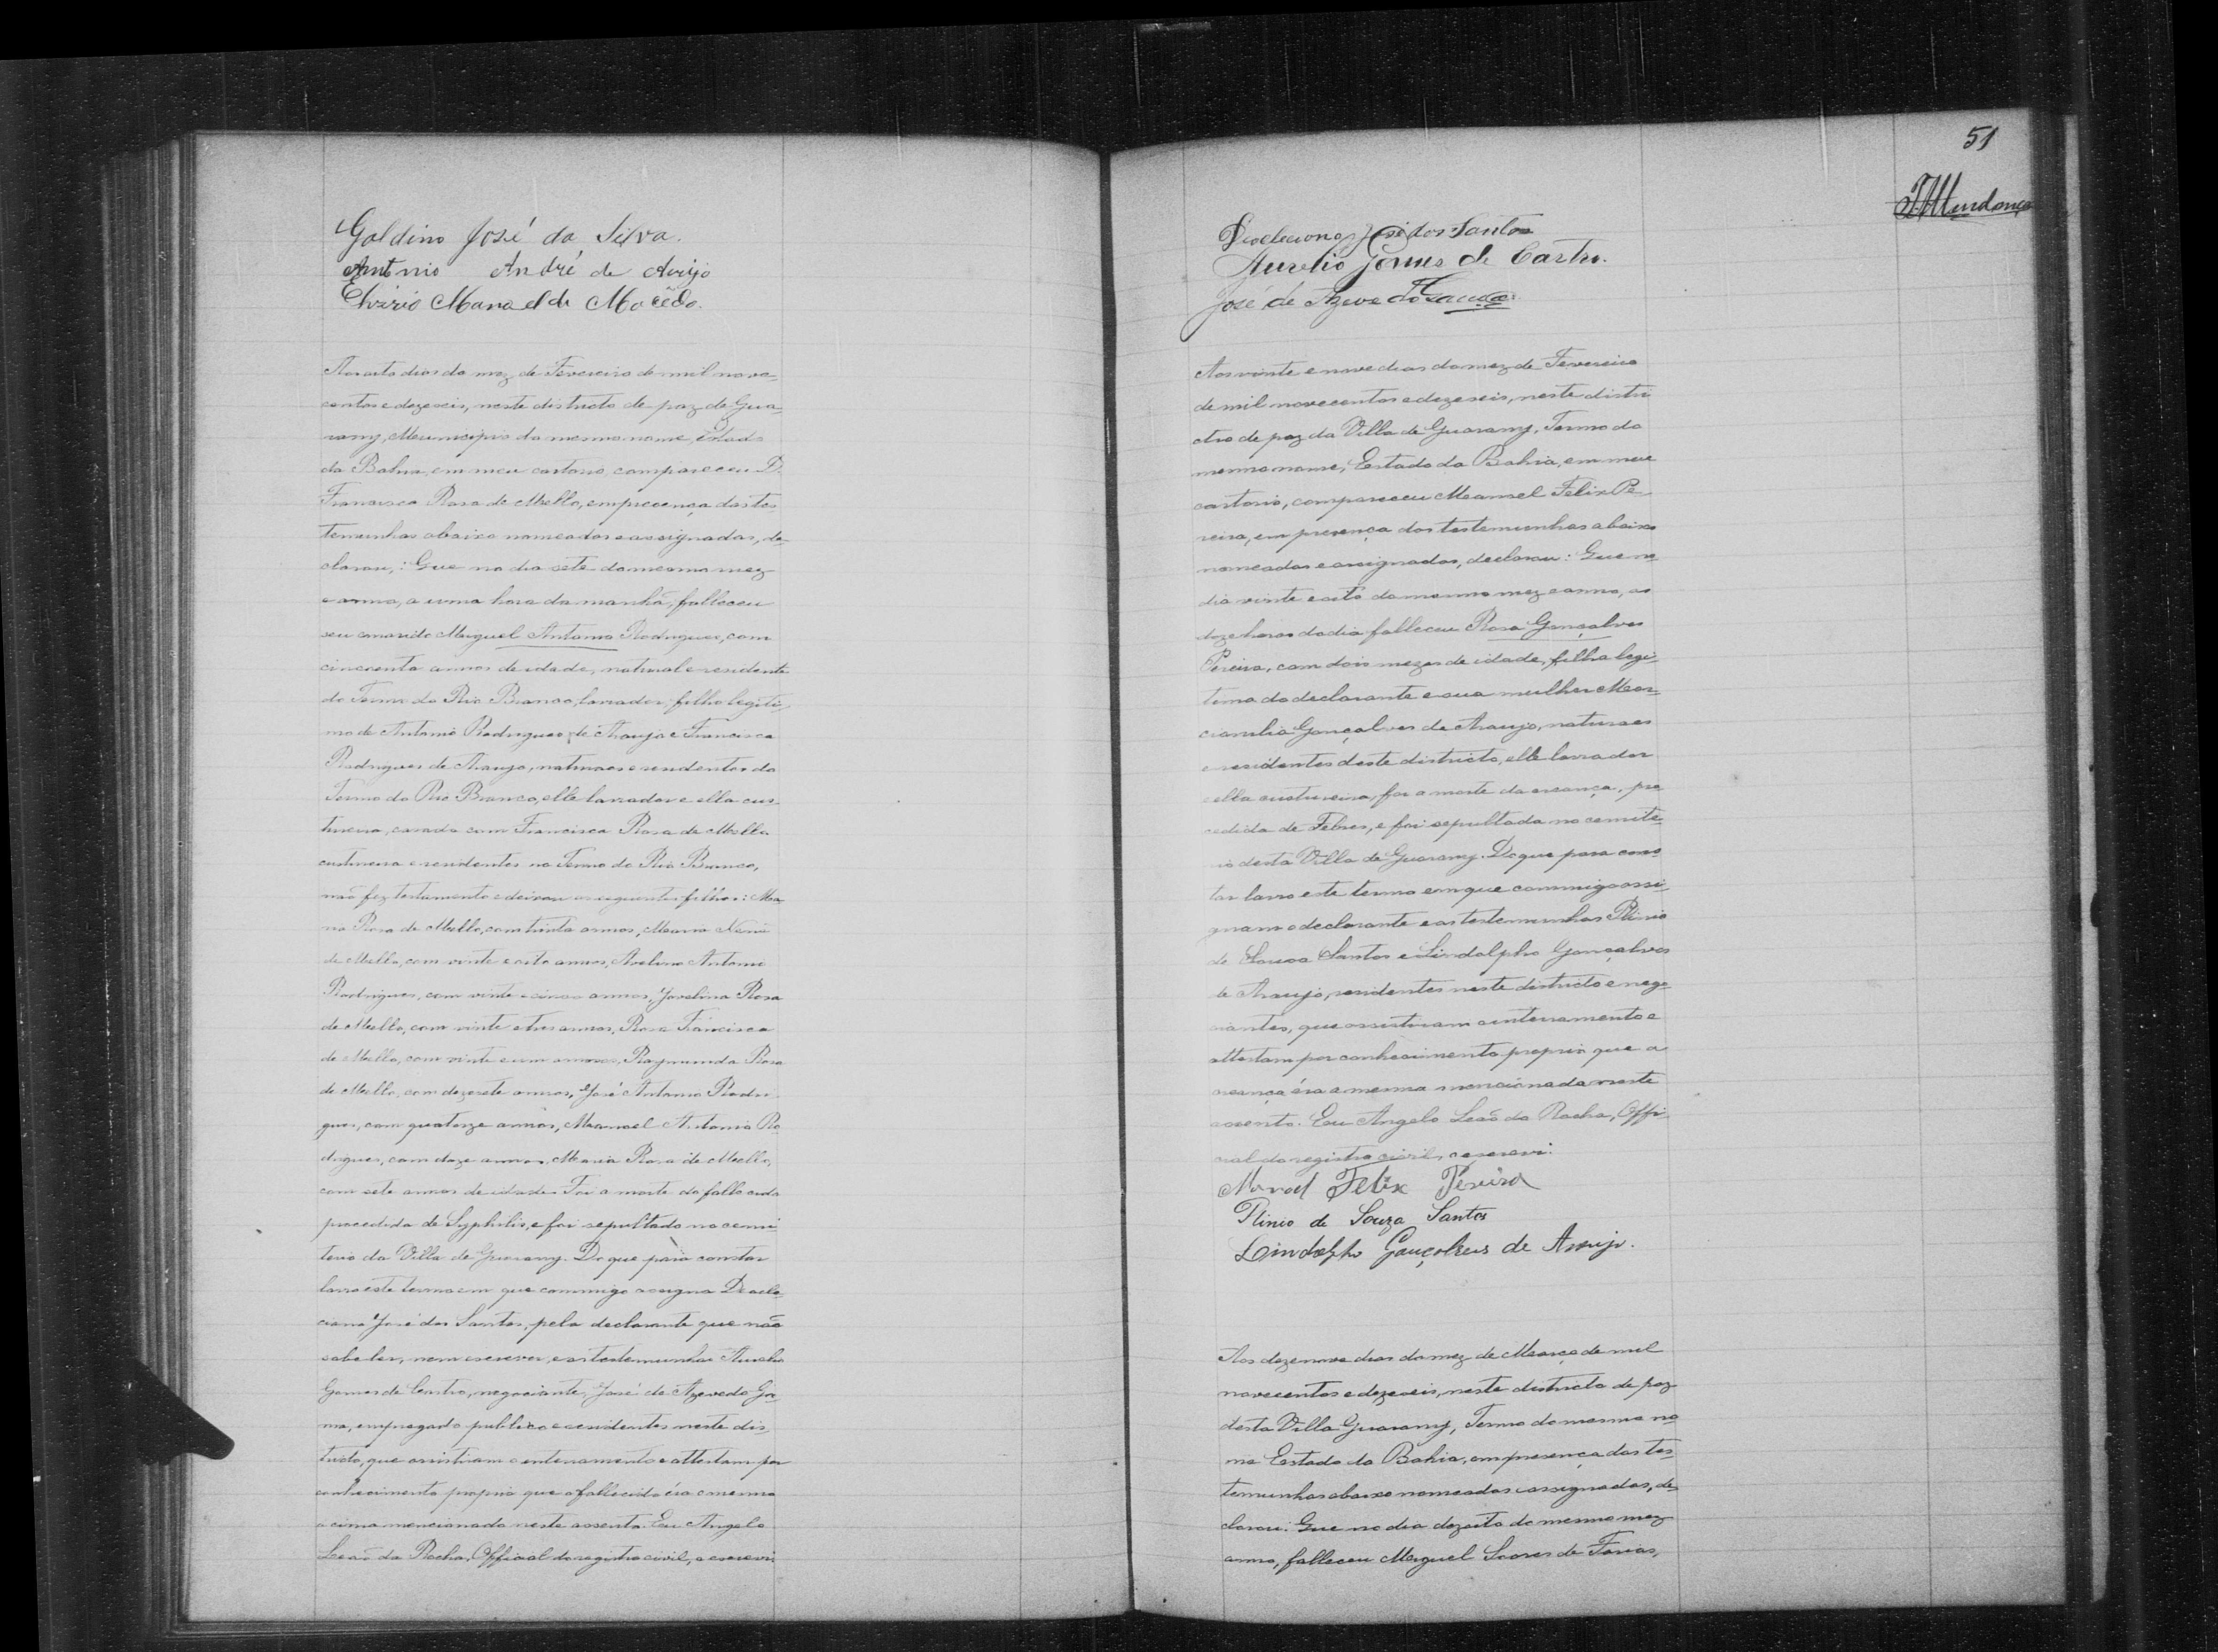 Galdino José da Silva.
Antonio André de Araújo
Elvirio Manoel de Macêdo.
Aos oito dias do mez de Fevereiro de mil nove-
centos e dezeseis, neste districto de paz de Gua-
rany, Municipio do mesmo nome, Estado
da Bahia, em meu cartorio, compareceu D.
Francisca Rosa de Mello, em precença das tes-
temunhas abaixo nomeadas e assignadas, de-
clarou,: Que no dia sete do mesmo mez
e anno, a uma hora da manhã, falleceu
seu marido Miguel Antonio Rodrigues, com
cincoenta annos de idade, natural e residente
do Termo do Rio Branco, lavrador, filho legiti-
mo de Antonio Rodrigues de Araujo e Francisca
Rodrigues de Araujo, naturaes e residentes do
Termo do Rio Branco, elle lavrador e ella cus-
tureira, casado com Francisca Rosa de Mello
custureira e residentes no Termo do Rio Branco,
não fez testamento e deixou os seguintes filhos: Ma-
ria Rosa de Mello, com trinta annos, Maria
de Mello, com vinte e oito annos, Avelino Antonio
Rodrigues, com vinte e cinco annos, Jovelina Rosa
de Mello, com vinte e tres annos, Rosa Francisca
de Mello, com vinte e um annos, Raymunda Rosa
de Mello, com dezesete annos, José Antonio Rodri-
gues, com quatorze annos, Manoel Antonio Ro-
drigues, com doze annos, Maria Rosa de Mello,
com sete annos de idade. Foi a morte do fallecido
procedida de Syphilis, e foi sepultado no cemi-
terio da Villa de Guarany. Do que para constar
lavro este termo em que commigo assigna Deocle-
ciano José dos Santos, pela declarante que não
sabe ler, nem escrever, e as testemunhas Aurelio
Gomes de Castro, negociante, José de Azevedo Ga-
ma, empregado publico e residentes neste dis-
tricto, que assistiram o enterramento e attestam por
conhecimento proprio que o fallecido éra o mesmo
acima mencionado neste assento. Eu Angelo
Leaõ da Rocha, Official do registro civil, o escrevi.
51
Mendonça
Deocleciano José dos Santos
Aurelio Gomes de Castro.
José de Azevedo Gama
Aos vinte e nove dias do mez de Fevereiro
de mil novecentos e dezeseis, neste distri-
cto de paz da Villa de Guarany, Termo do
mesmo nome, Estado da Bahia, em meu
cartorio, compareceu Manoel Felix Pe-
reira, em presença das testemunhas abaixo
nomeadas e assignadas, declarou: Que no
dia vinte e oito do mesmo mez e anno, as
doze horas do dia falleceu Rosa Gonçalves
Pereira, com dois mezes de idade, filha legi-
tima do declarante e sua mulher Mar-
cionilia Gonçalves de Araujo, naturaes
e residentes deste districto, elle lavrador
e ella custureira, foi a morte da creança, pro-
cedida de Febres, e foi sepultada no cemite-
rio desta Villa de Guarany. Do que para cons-
tar lavro este termo em que commigo assi-
gnam o declarante e as testemunhas Plinio
de Souza Santos e Lindolpho Gonçalves
de Araujo, residentes neste districto e nego-
ciantes, que assistiram o enterramento e
attestam por conhecimento proprio que a
creança éra a mesma mencionada neste
assento. Eu Angelo Leaõ da Rocha, Offi-
cial do registro civil, o escrevi.
Manoel Felix Pereira
Plinio de Souza Santos
Lindolpho Gonçalves de Araujo.
Aos dezenove dias do mez de Março de mil
novecentos e dezeseis, neste districto de paz
desta Villa Guarany, Termo do mesmo no-
me Estado da Bahia, em presença das tes-
temunhas abaixo nomeadas e assignadas, de-
clarou: Que no dia dezoito do mesmo mez
anno, falleceu Miguel Soares de Farias,